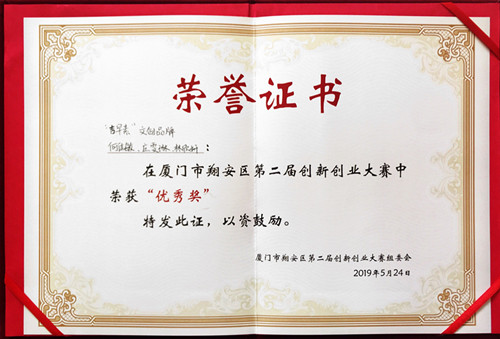 荣誉证书
文创品牌
:
在厦门市翔安区第二届创新创业大赛中
荣获“优秀奖”
特发此证,以资鼓励。
厦门市翔安区第二届创新创业大赛组委会
2019年5月24日